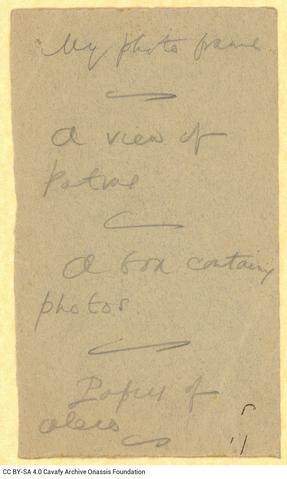 My photo frame
A view of
A box containing
photos
of
CC BY-SA 4.0 Cavafy Archive Onassis Foundation